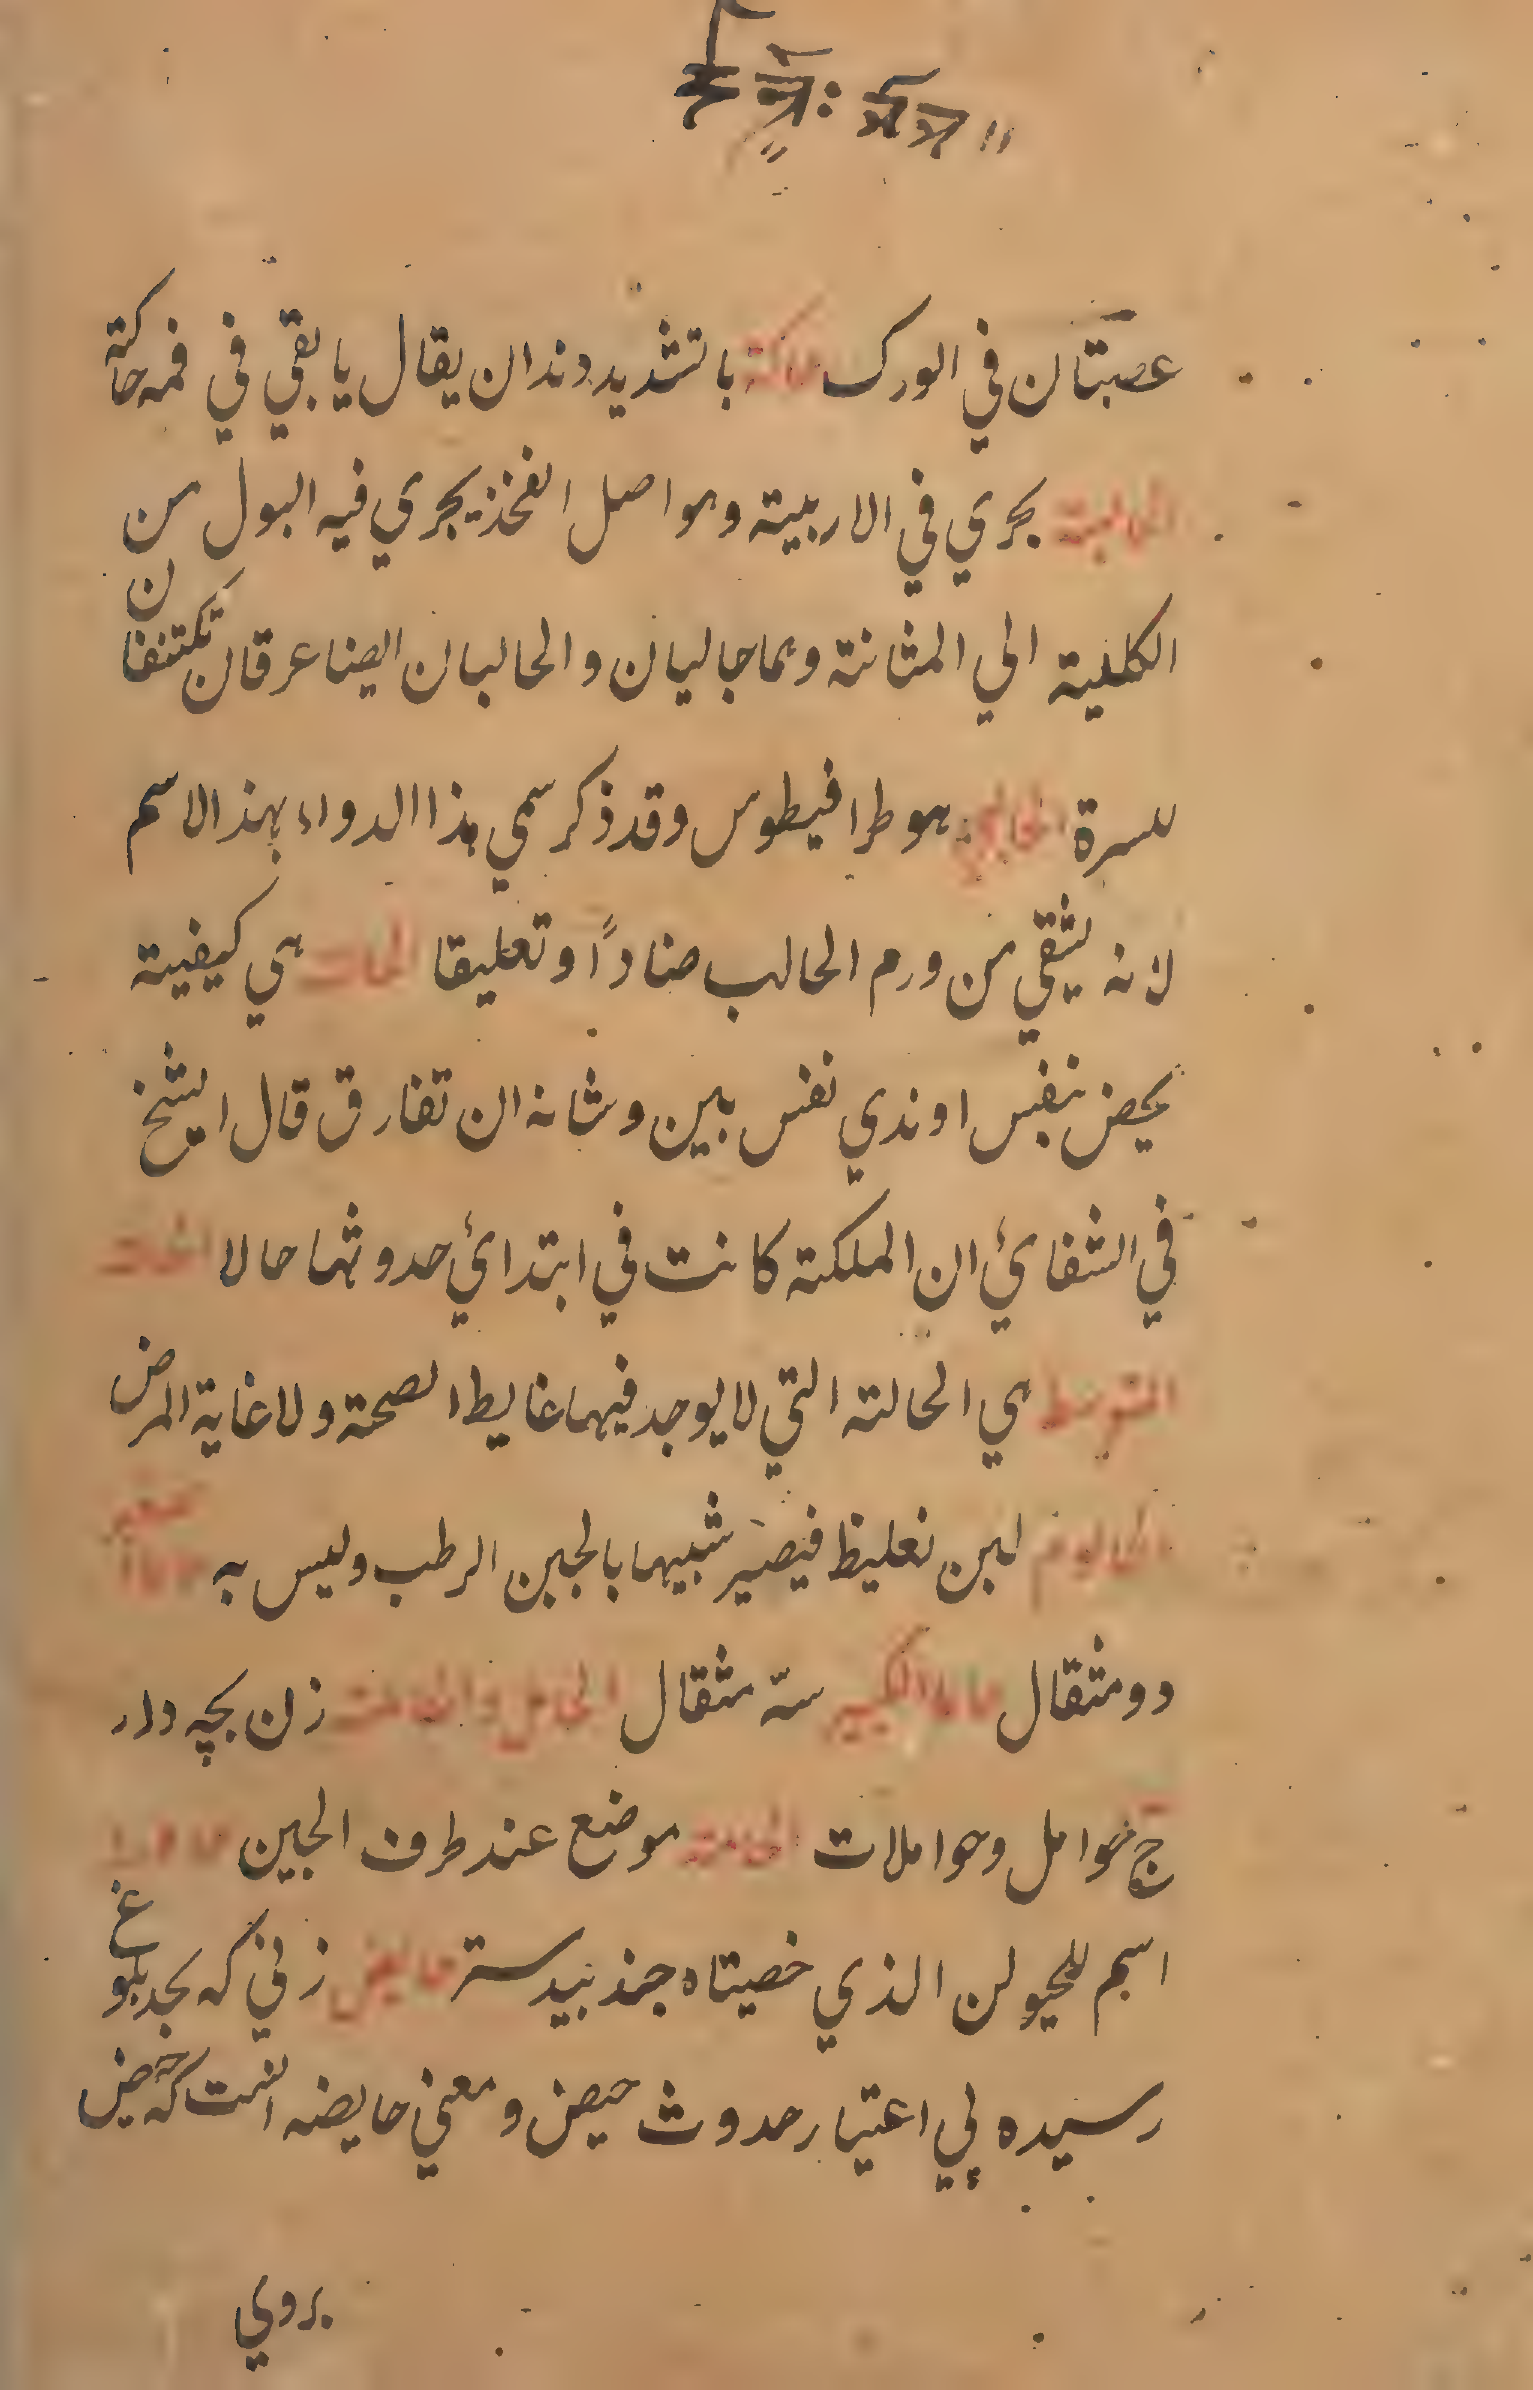 عصبتان في الورك حاكة با تشديد دندان يقال يا بقي في فمه حاكة
الحالبة بحري في الاربية وهو اصل الفخذ يجري فيه البول من
الكلية الي المثانة وهما جاليان والحالبان ايضا عرقان تكتنفان
للسرة الحالبي هو طرافيطوس وقد ذكر سمي هذا الدواء بهذا الاسم
لانه يشقي من ورم الحالب ضمادًا وتعليقا الحالت هي كيفية
يختص بنفس او ندي نفس بين وشانه ان تفارق قال الشيخ
في الشفائ ان الملكة كانت في ابتدائ حدوثها حالا الحالت
المتوسط هي الحالة التي لا يوجد فيها غايط الصحة ولا غاية المرض
الحالوم لبن نعليظ فيصير شبيها بالجبن الرطب وليس به صغير
دو مثقال حاما الكبير سته مثقال الحامل والحاملة زن بچه دار
ج حوامل وحواملات الحامة موضع عند طرف الجبين
اسم للحيوان الذي خصيتاه جند بيدستر حايض زني كه بحد بلوغ
رسيده بي اعتبار حدوث حيض ومعني حايضه انست كه حيض
بروي